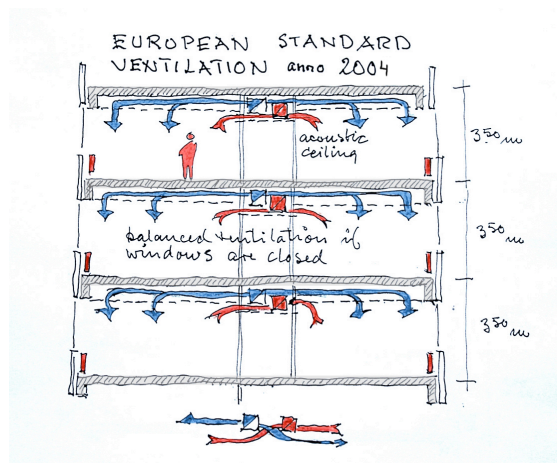 EUROPEAN STANDARD
VENTILATION anno 2004
acoustic
ceiling
350 m
balanced ventilation if
windows are closed
350 m
350 m